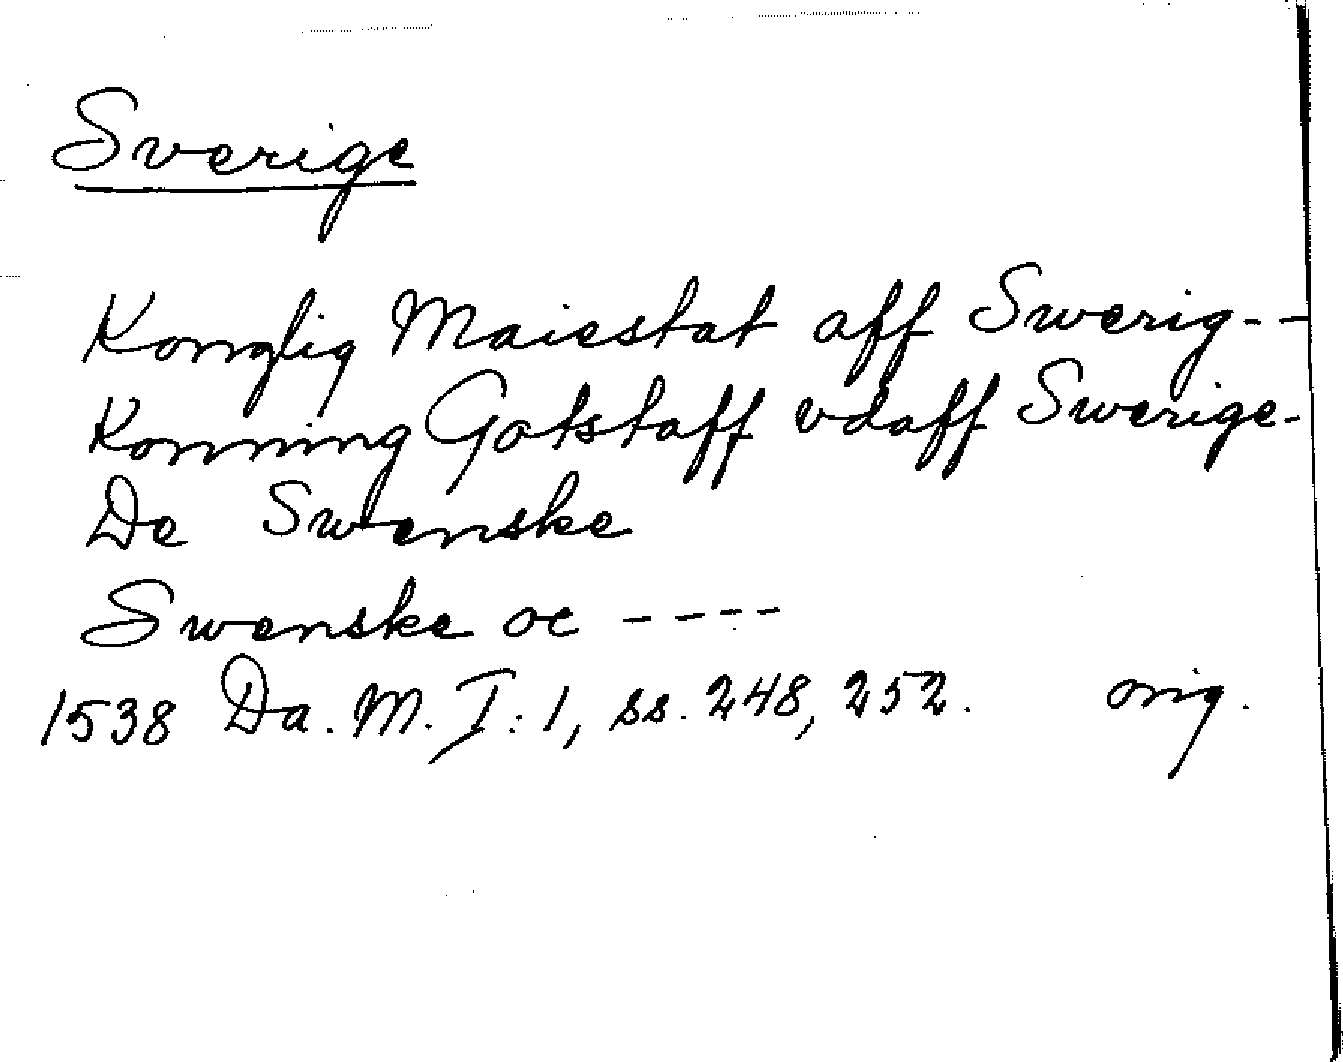 Sverige
Konglig Maiestat aff Swerig--
Konning Gotstaff vdaff Swerige-
De Swenske
Swenske oc ----
1538 Da. M. I: 1, ss. 248, 252. orig.